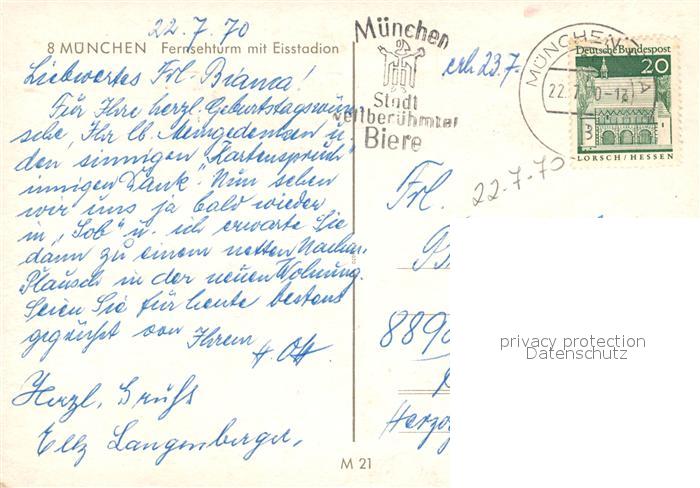 22.7.70
8 MÜNCHEN Fernsehturm mit Eisstadion
Liebwertes Frl. Bianca!
Für Ihre herzl. Geburtstagswün-
sche, Ihr lb. Meingedenken u.
den sinnigen "Kartenspruch"
innigen Dank". Nun sehen
wir uns ja bald wieder
in "Sob" u. ich erwarte Sie
dann zu einem netten
Plausch in der neuen Wohnung.
Seien Sie für heute bestens
gegrüßt von Ihrem
H. Ott
Herzl. Grüße
Elly Langenberger,
München
Stadt
weltberühmter
Biere
erh 23.7.
MÜNCHEN
22.7.70-18
Deutsche Bundespost
20
LORSCH/HESSEN
22-7-70
Frl.
B
8890
Herzog
privacy protection
Datenschutz
M 21